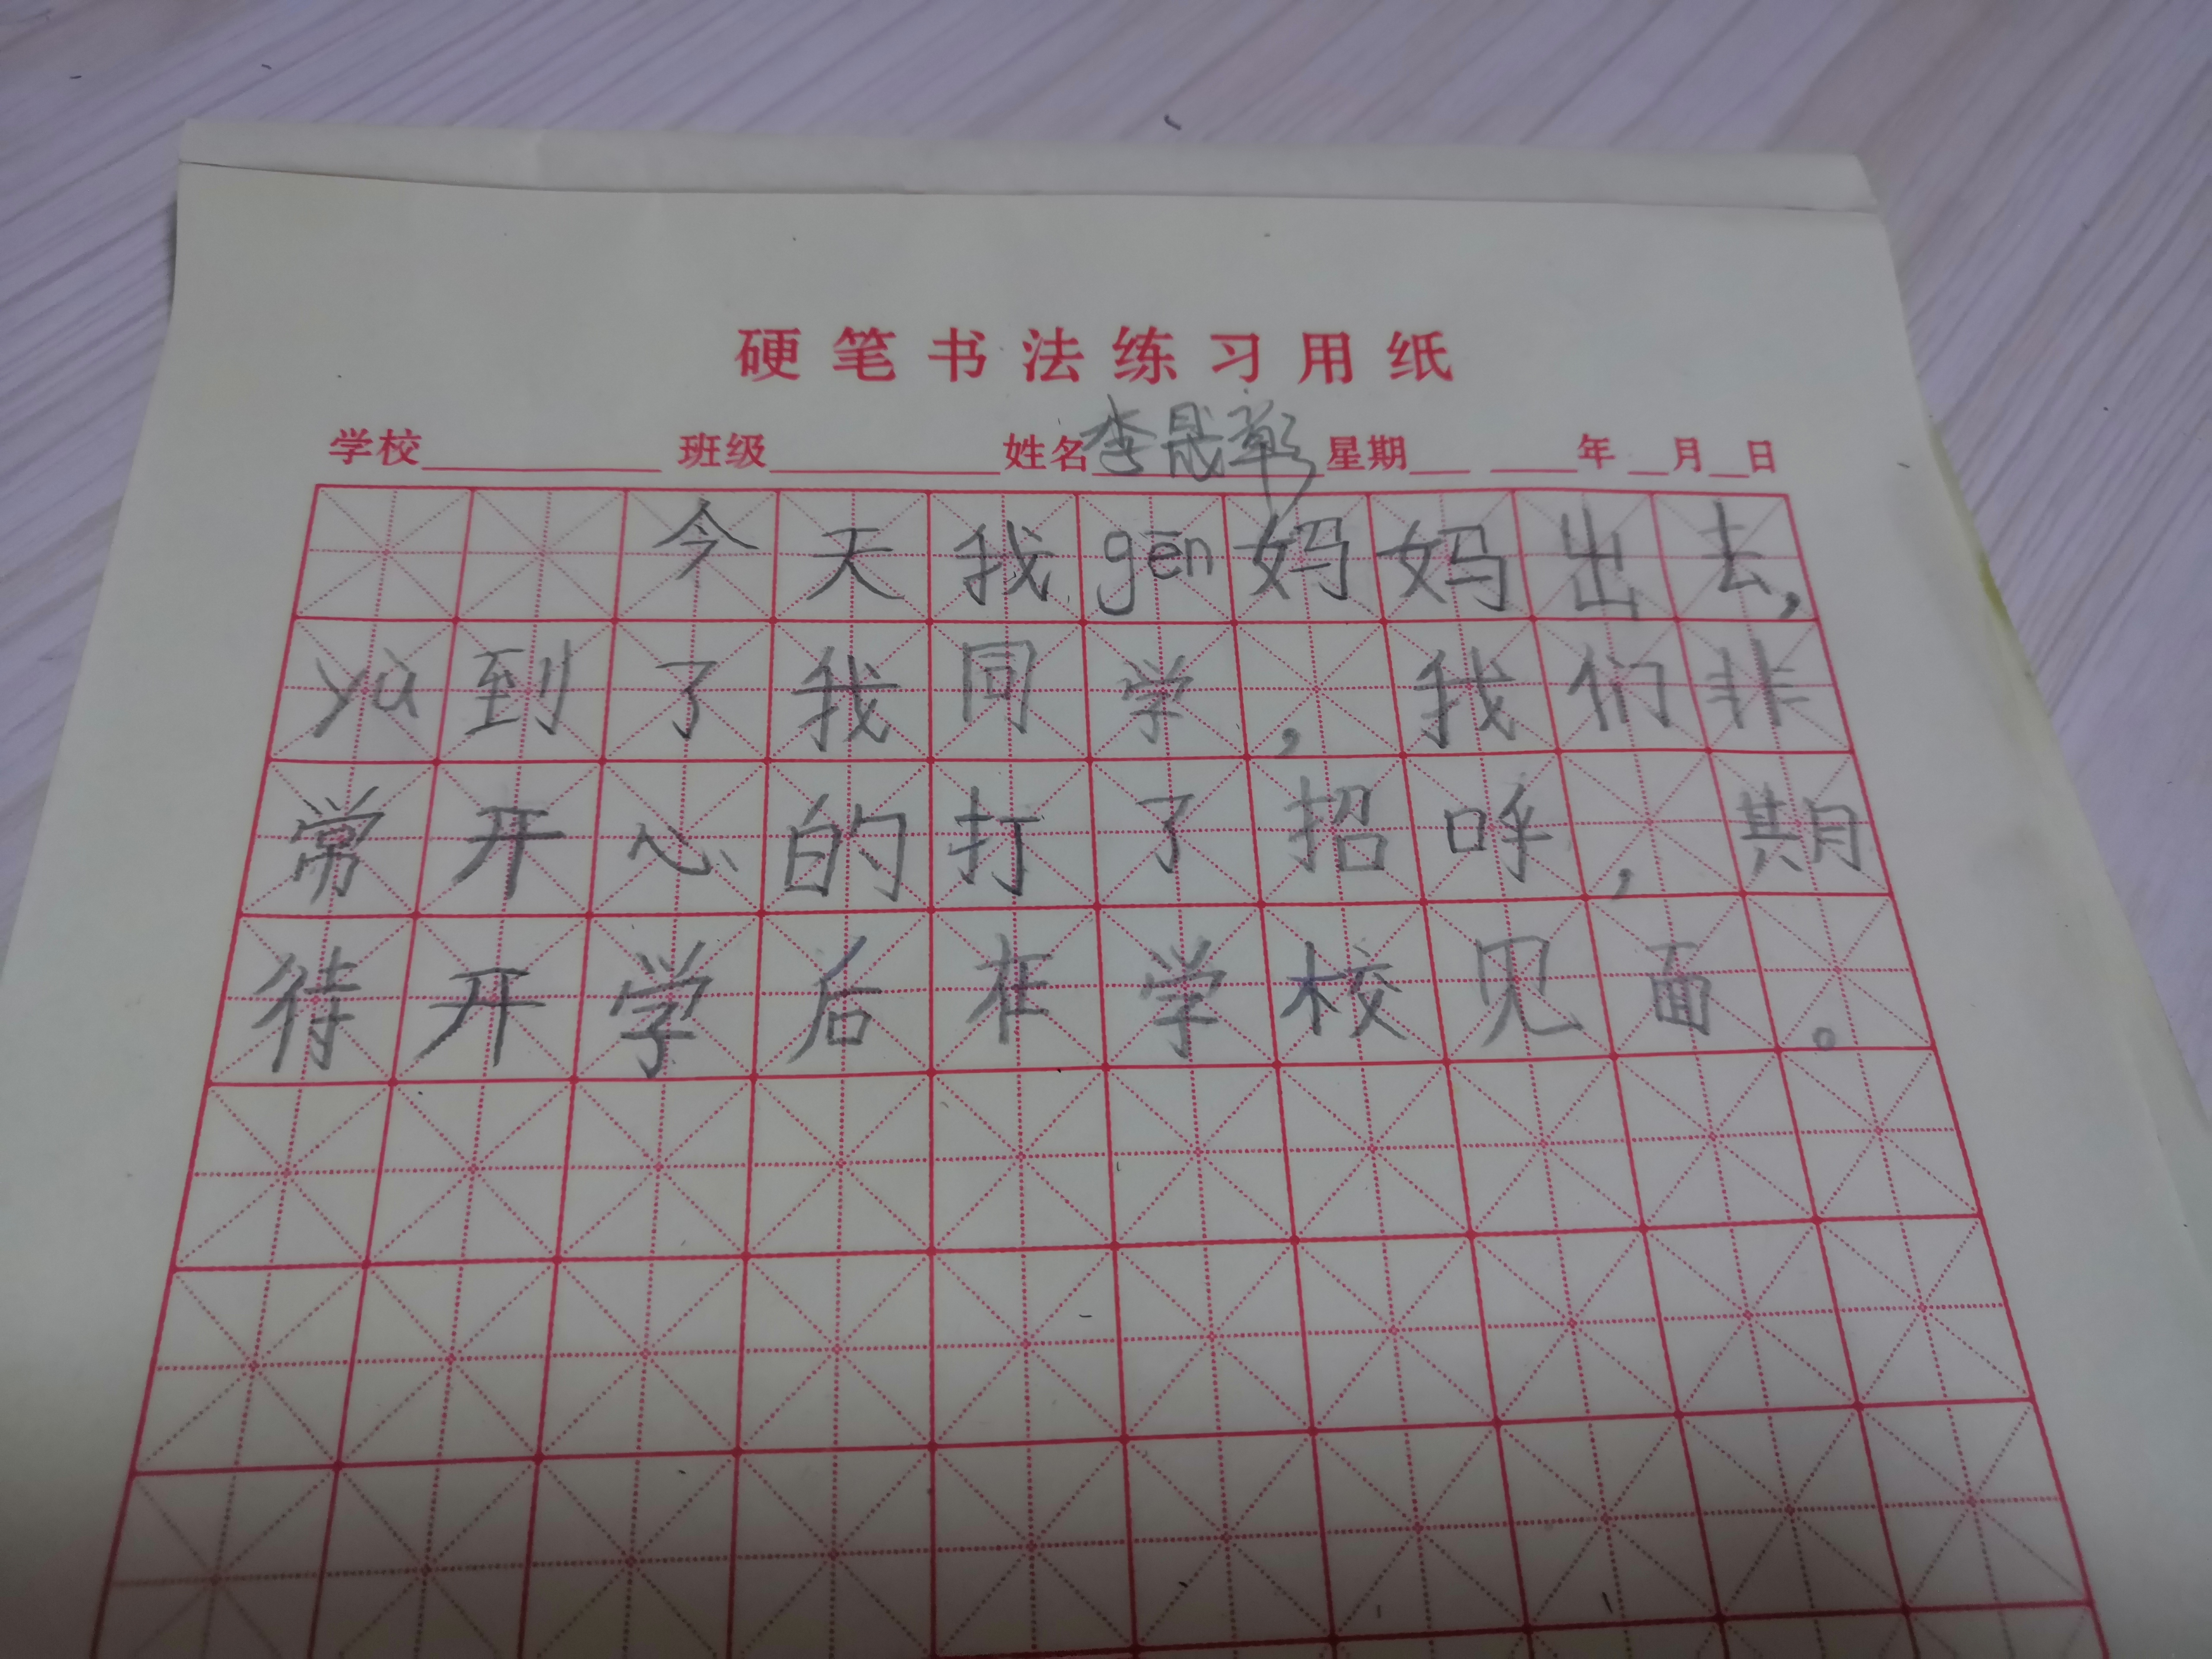 硬笔书法练习用纸
学校 班级 姓名李晟彰 星期 年 月 日
今天我gēn妈妈出去,
yù到了我同学,我们非
常开心的打了招呼,期
待开学后在学校见面。